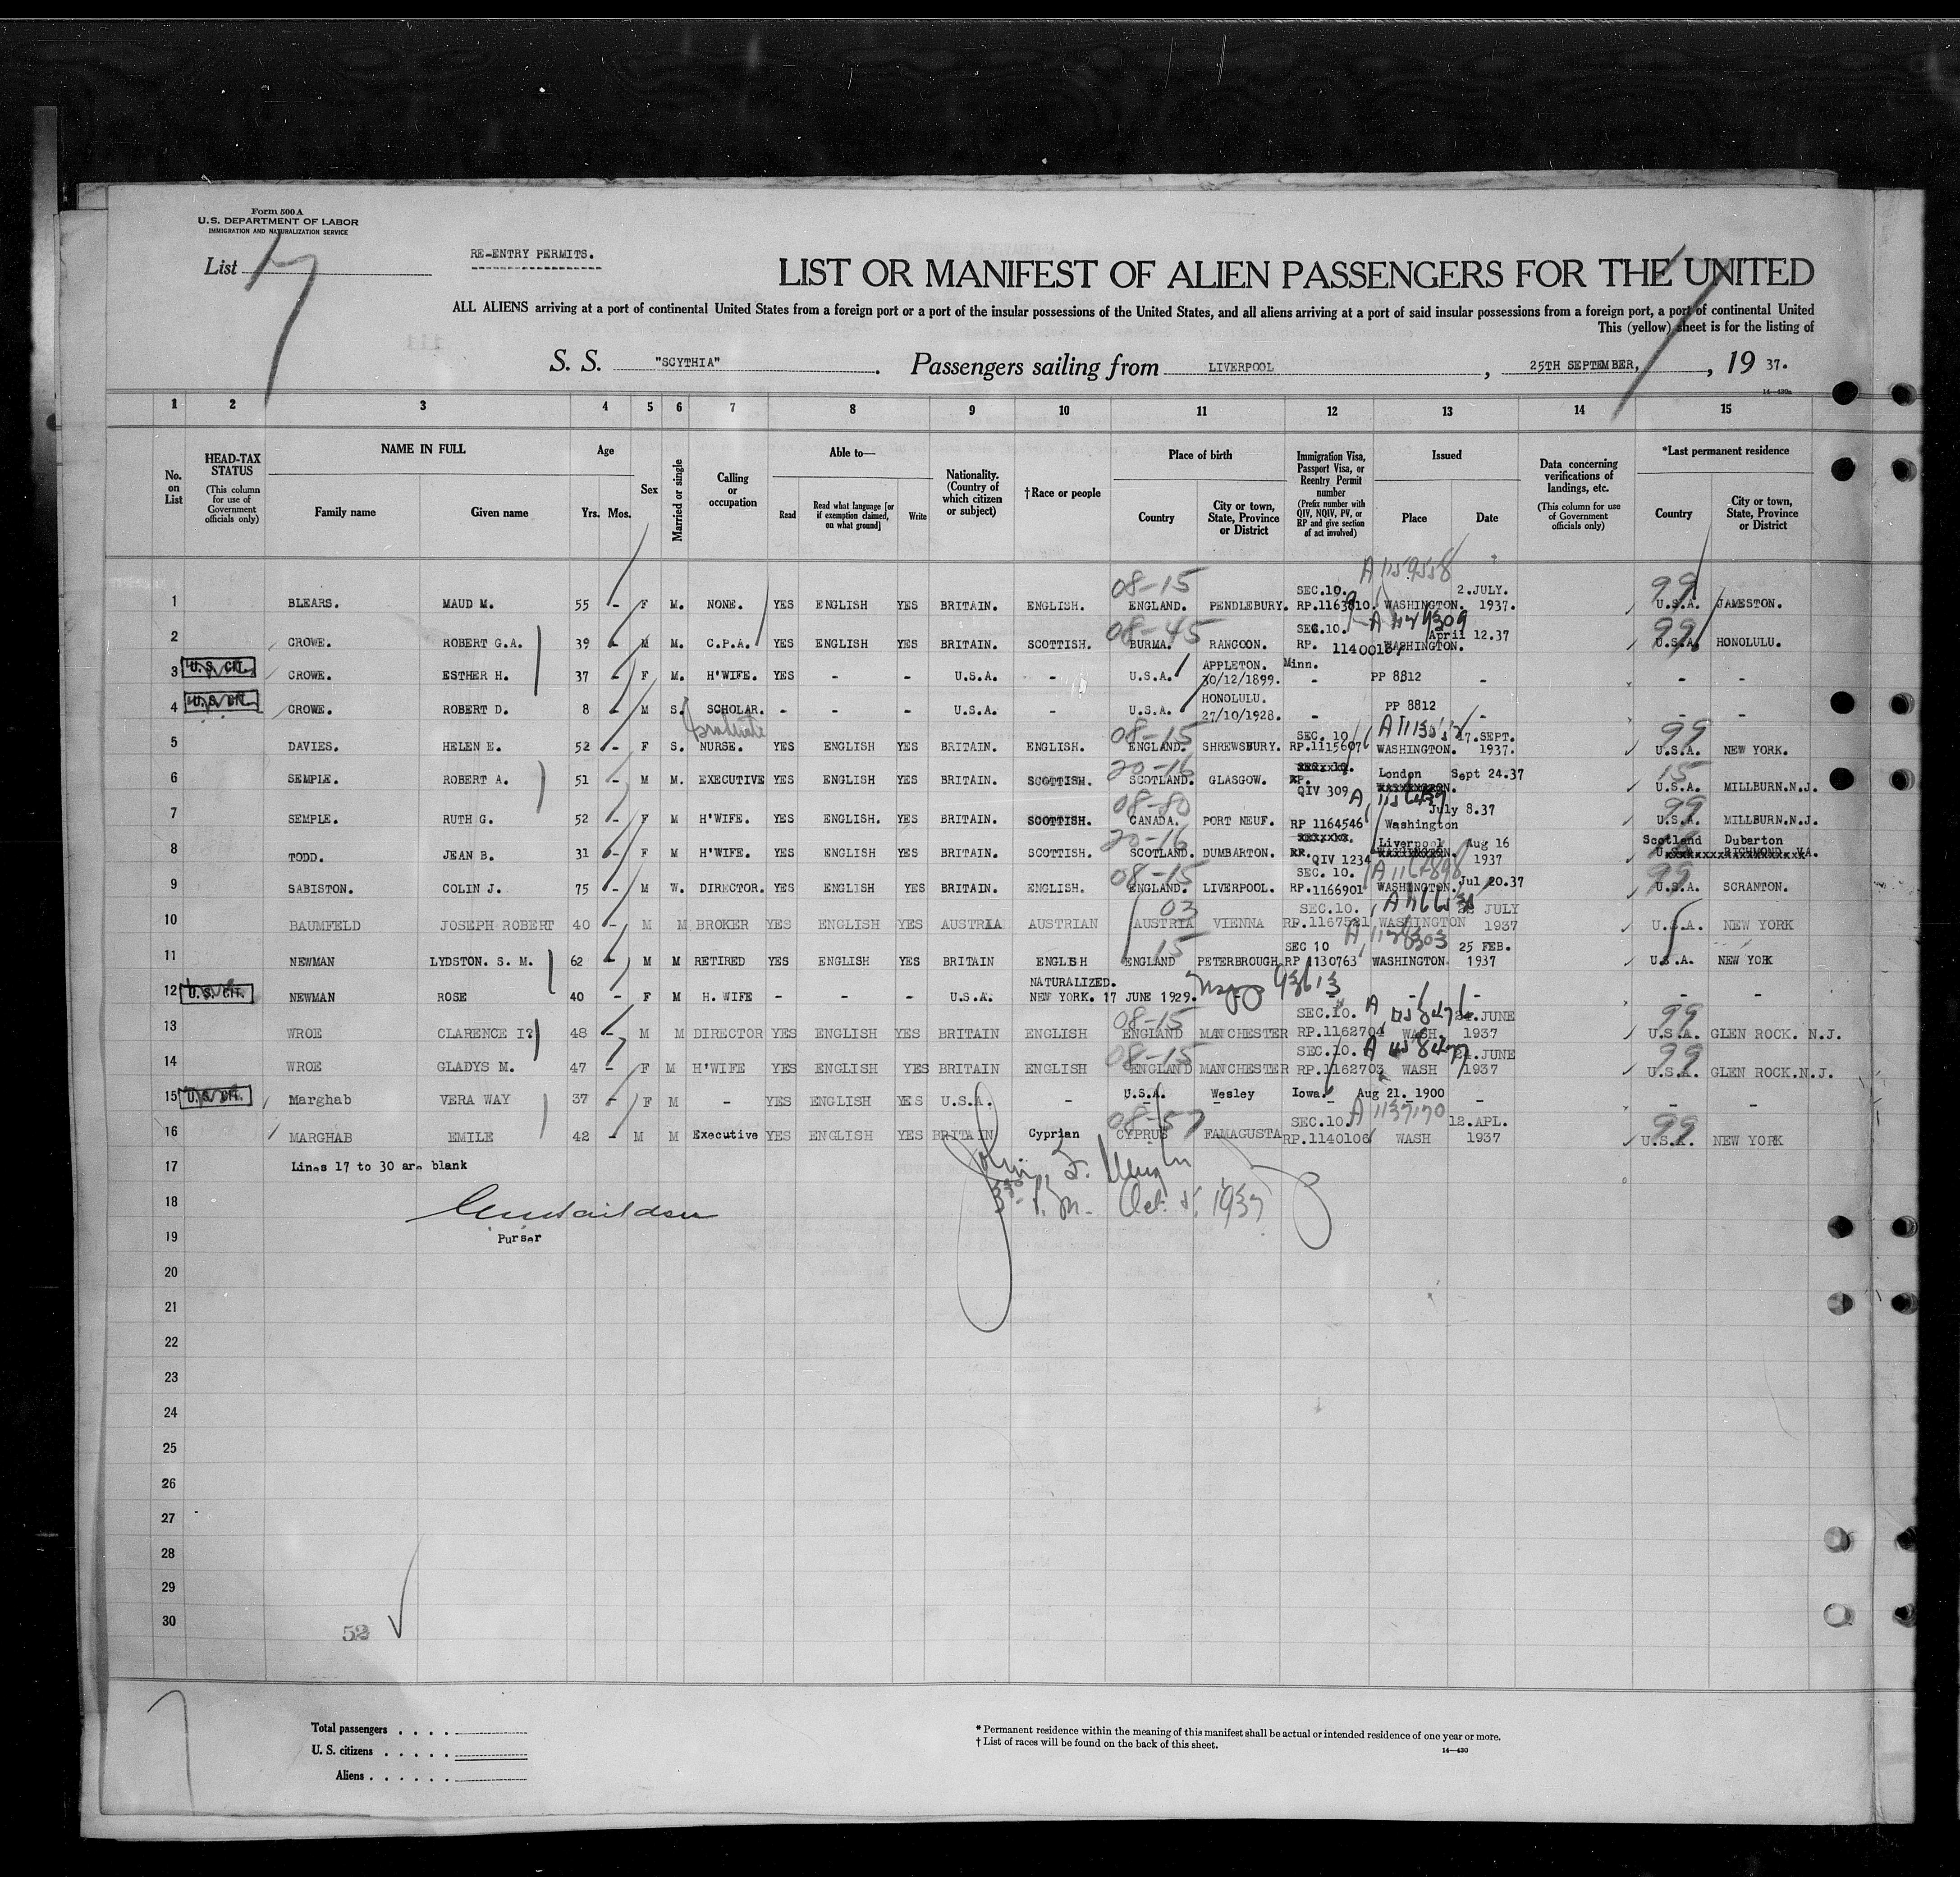 Form 500 A
U.S. DEPARTMENT OF LABOR
IMMIGRATION AND NATURALIZATION SERVICE
List 7
RE-ENTRY PERMITS.
LIST OR MANIFEST OF ALIEN PASSENGERS FOR THE UNITED
ALL ALIENS arriving at a port of continental United States from a foreign port or a port of the insular possessions of the United States, and all aliens arriving at a port of said insular possessions from a foreign port, a port of continental United
This (yellow) sheet is for the listing of
S. S. "SCYTHIA". Passengers sailing from LIVERPOOL, 25TH SEPTEMBER, , 19 37.
14—430a
1 2 3 4 5 6 7 8 9 10 11 12 13 14 15
No. on List
HEAD-TAX STATUS (This column for use of Government officials only)
NAME IN FULL Family name Given name
Age Yrs. Mos.
Sex
Married or single
Calling or occupation
Able to— Read Read what language [or if exemption claimed, on what ground] Write
Nationality. (Country of which citizen or subject)
†Race or people
Place of birth Country City or town, State, Province or District
Immigration Visa, Passport Visa, or Reentry Permit number (Prefix number with QIV, NQIV, PV, or RP and give section of act involved)
Issued Place Date
Data concerning verifications of landings, etc. (This column for use of Government officials only)
*Last permanent residence Country City or town, State, Province or District
08-15 SEC.10. A 1159558 2.JULY. 99
1 BLEARS. MAUD M. 55 - F M. NONE. YES ENGLISH YES BRITAIN. ENGLISH. ENGLAND. PENDLEBURY. WASHINGTON. 1937. U.S.A. JAMESTON.
08-45 SEC.10. April 12.37 99
2 CROWE. ROBERT G.A. 39 - M M. C.P.A. YES ENGLISH YES BRITAIN. SCOTTISH. BURMA. RANGOON. RP. WASHINGTON. U.S.A. HONOLULU.
APPLETON. Minn.
3 U.S. CIT. CROWE. ESTHER H. 37 - F M. H'WIFE. YES - - U.S.A. - U.S.A. 30/12/1899. - PP 8812 - - -
HONOLULU.
4 U.S. CIT. CROWE. ROBERT D. 8 - M S. SCHOLAR. - - - U.S.A. - U.S.A. 27/10/1928. - PP 8812 - - -
Graduate 08-15 SEC. 10 17.SEPT. 99
5 DAVIES. HELEN E. 52 - F S. NURSE. YES ENGLISH YES BRITAIN. ENGLISH. ENGLAND. SHREWSBURY. RP.1115607 WASHINGTON. 1937. U.S.A. NEW YORK.
20-16 London Sept 24.37 15
6 SEMPLE. ROBERT A. 51 - M M. EXECUTIVE YES ENGLISH YES BRITAIN. SCOTTISH. SCOTLAND. GLASGOW. QIV 309 U.S.A. MILLBURN.N.J.
08-80 July 8.37 99
7 SEMPLE. RUTH G. 52 - F M H'WIFE. YES ENGLISH. YES BRITAIN. SCOTTISH. CANADA. PORT NEUF. RP 1164546 Washington U.S.A. MILLBURN.N.J.
20-16 Liverpool Aug 16 Scotland Duberton
8 TODD. JEAN B. 31 - F M H'WIFE. YES ENGLISH YES BRITAIN. SCOTTISH. SCOTLAND. DUMBARTON. QIV 1234 WASHINGTON. 1937 U.S.A. RICHMOND VA.
08-15 SEC. 10. Jul 20.37 99
9 SABISTON. COLIN J. 75 - M W. DIRECTOR. YES ENGLISH YES BRITAIN. ENGLISH. ENGLAND. LIVERPOOL. RP.1166901 WASHINGTON. U.S.A. SCRANTON.
03 SEC.10. JULY
10 BAUMFELD JOSEPH ROBERT 40 - M M BROKER YES ENGLISH YES AUSTRIA AUSTRIAN AUSTRIA VIENNA RP.1167521 WASHINGTON 1937 U.S.A. NEW YORK
15 SEC 10 25 FEB.
11 NEWMAN LYDSTON. S. M. 62 - M M RETIRED YES ENGLISH YES BRITAIN ENGLISH ENGLAND PETERBROUGH RP 1130763 WASHINGTON 1937 U.S.A. NEW YORK
NATURALIZED.
12 U.S. CIT. NEWMAN ROSE 40 - F M H. WIFE - - - U.S.A. NEW YORK. 17 JUNE 1929. 93613 - - - -
08-15 SEC.10. 24.JUNE 99
13 WROE CLARENCE I? 48 - M M DIRECTOR YES ENGLISH YES BRITAIN ENGLISH ENGLAND MANCHESTER RP.1162704 WASH. 1937 U.S.A. GLEN ROCK. N.J.
08-15 SEC.10. 24.JUNE 99
14 WROE GLADYS M. 47 - F M H'WIFE YES ENGLISH YES BRITAIN ENGLISH ENGLAND MANCHESTER RP.1162703 WASH 1937 U.S.A. GLEN ROCK.N.J.
15 U.S. CIT. Marghab VERA WAY 37 - F M - YES ENGLISH YES U.S.A. - U.S.A. Wesley Iowa. Aug 21. 1900 - - -
08-57 SEC.10. A 1137170 12.APL. 99
16 MARGHAB EMILE 42 - M M Executive YES ENGLISH YES BRITAIN Cyprian CYPRUS FAMAGUSTA RP.1140106 WASH 1937 U.S.A. NEW YORK
17 Lines 17 to 30 are blank
John F.
18 P.M. Oct. 5, 1937
19 Purser
20
21
22
23
24
25
26
27
28
29
30
52
Total passengers
U. S. citizens
Aliens
* Permanent residence within the meaning of this manifest shall be actual or intended residence of one year or more.
† List of races will be found on the back of this sheet.
14—430